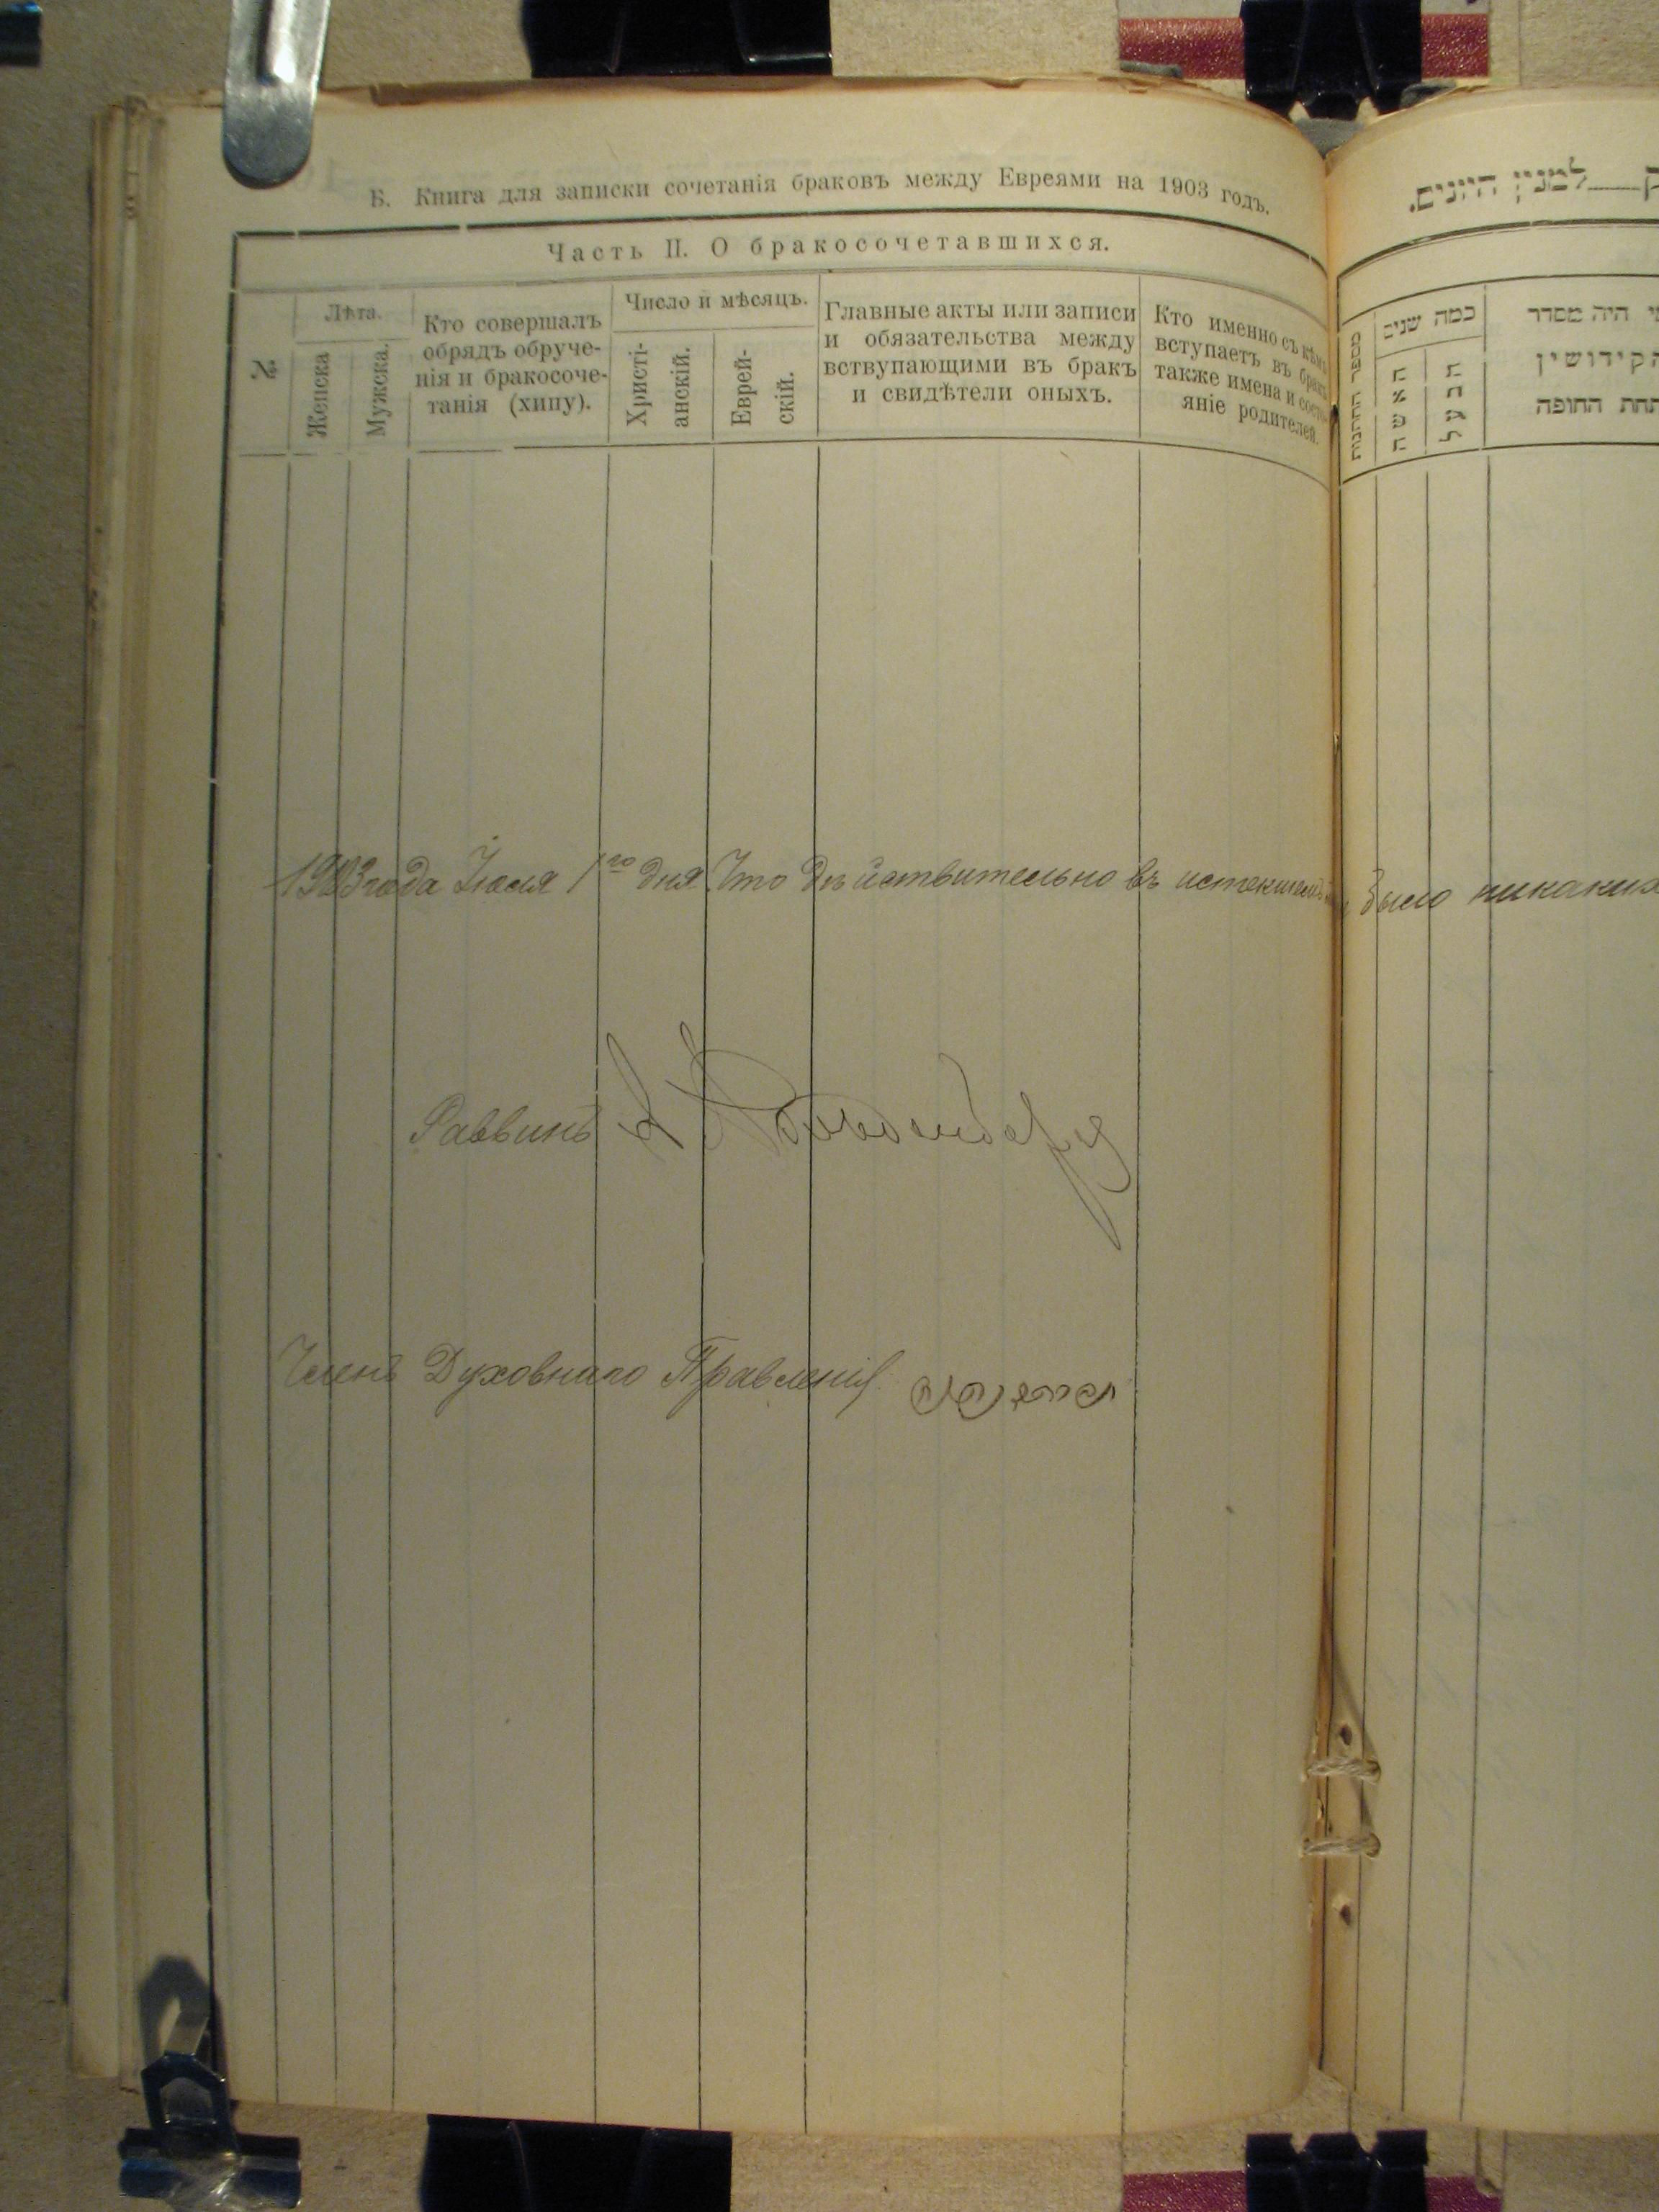 Б. Книга для записки сочетанія браковъ между Евреями на 1903 годъ.
Часть II. О бракосочетавшихся.
№
Лѣта.
Женска
Мужска.
Кто совершалъ
обрядъ обруче-
нія и бракосоче-
танія (хипу).
Число и мѣсяцъ.
Христі-
анскій.
Еврей-
скій.
Главные акты или записи
и обязательства между
вствупающими въ бракъ
и свидѣтели оныхъ.
Кто именно съ кѣмъ
вступаетъ въ бракъ
также имена и состо-
яніе родителей.
1903 года Іюля 1го дня. Что дѣйствительно въ истекшемъ
Раввинъ
Членъ Духовнаго Правленія
למנין היונים.
מספר החתונות
כמה שנים
האשה
הבעל
היה מסדר
הקידושין
תחת החופה
было никакихъ